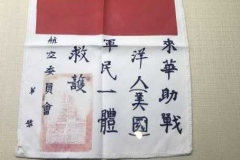 來華助戰
洋人美國
軍民一體
救護
航空委員會
第 號